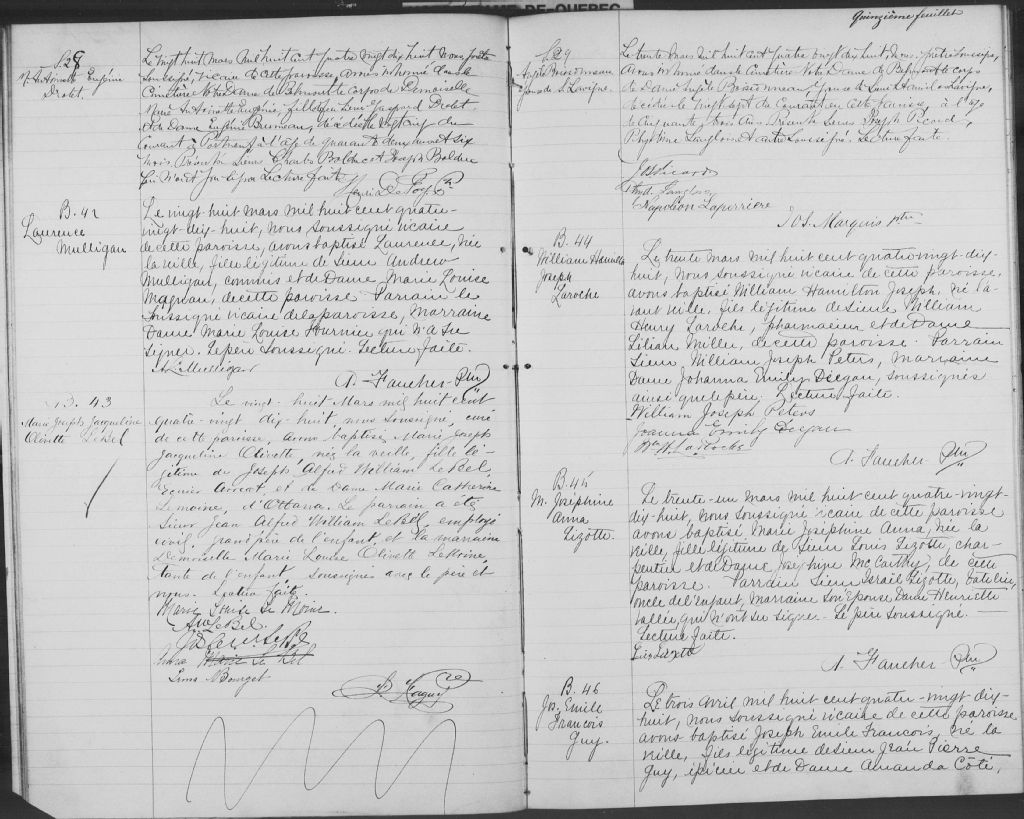 S. 28
M. Antoinette Eugénie
Drolet.
Le vingt huit Mars mil huit cent quatre vingt dix huit nous prêtre
soussigné, vicaire de cette paroisse, avons inhumé dans le
Cimetière Notre Dame de Belmont le corps de Demoiselle
Marie Antoinette Eugénie, fille de feu Sieur Drolet
et de Dame Eugénie décédée le vingt six du
courant à l'âge de quarante deux ans et six
mois. Présents Sieurs Charles Bolduc et Joseph Bolduc
qui n'ont su signer Lecture faite
B. 42
Laurence
Mulligan
Le vingt-huit mars mil huit cent quatre-
vingt-dix-huit, nous soussigné vicaire
de cette paroisse, avons baptisé Laurence, née
la veille, fille légitime de Sieur Andrew
Mulligan, commis et de Dame Marie Louise
de cette paroisse Parrain le
soussigné vicaire de la paroisse, Marraine
Dame Marie Louise Fournier qui n'a su
signer. Le père soussigné. Lecture faite.
Mulligan
A. Faucher Ptre
B. 43
Marie Joseph Jacqueline
Olivette LeBel
Le vingt-huit Mars mil huit cent
quatre-vingt dix-huit, nous soussigné, curé
de cette paroisse, avons baptisé Marie Joseph
Jacqueline Olivette, née la veille, fille lé-
gitime de Joseph Alfred William LeBel
Ecuier Avocat et de Dame Marie Catherine
Lemoine, d'Ottawa. Le parrain a été
Sieur Jean Alfred William LeBel, employé
civil, grand père de l'enfant, et la marraine
Demoiselle Marie Louise Olivette LeMoine,
tante de l'enfant, soussignés avec le père et
nous. Lecture faite.
Marie Louise Le Moine.
LeBel.
Marie Le Bel
Bourget
Quinzième feuillet
S. 29
Brisonneau
épouse de L. Lavigne.
Le trente Mars mil huit cent quatre vingt dix huit nous prêtre soussigné,
avons inhumé dans le Cimetière Notre Dame de Belmont le corps
de Dame Brisonneau, épouse de Sieur Lavigne,
décédée le vingt sept du courant en cette paroisse, à l'âge
de cinquante trois ans. Présents Sieurs Joseph Picard,
Langlois et autres soussignés. Lecture faite.
Jos Picard
Langlois
Napoléon Laperrière
Jos. Marquis ptre
B. 44
William Hamilton
Joseph
Laroche
Le trente mars mil huit cent quatre vingt-dix-
huit, nous soussigné vicaire de cette paroisse,
avons baptisé William Hamilton Joseph, né l'a-
vant veille, fils légitime de Sieur William
Henry Laroche, pharmacien et de Dame
Lilian Miller, de cette paroisse. Parrain
Sieur William Joseph Peters, Marraine
Dame Johanna Emily Deegan, soussignés
ainsi que le père. Lecture faite.
William Joseph Peters
Joanna Emily Deegan
W. H. Laroche
A. Faucher Ptre
B. 45
M. Joséphine
Anna
Lizotte.
Le trente-un mars mil huit cent quatre-vingt-
dix-huit, nous soussigné vicaire de cette paroisse
avons baptisé Marie Joséphine Anna, née la
veille, fille légitime de Sieur Louis Lizotte, char-
pentier et de Dame Joséphine McCarthy, de cette
paroisse. Parrain Sieur Israël Lizotte, batelier,
oncle de l'enfant, Marraine son épouse Dame Henriette
Vallée, qui n'ont su signer. Le père soussigné.
Lecture faite.
A. Faucher Ptre
B. 46
Jos. Emile
François
Guy.
Le trois avril mil huit cent quatre-vingt dix-
huit, nous soussigné vicaire de cette paroisse
avons baptisé Joseph Emile François, né la
veille, fils légitime de Sieur Jean Pierre
Guy, épicier et de Dame Amanda Côté,